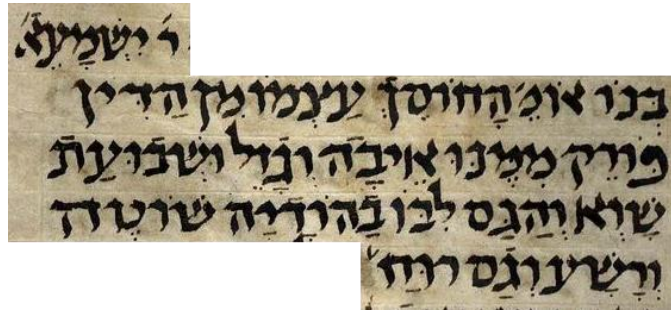 ר׳ יִשְׁמָעֵא׳
בְּנוֹ אוֹמֵ׳ הַחוֹסֵךְ עַצְמוֹ מִן הַדִּין
פּוֹרֵק מִמֶּנּוּ אֵיבָה וְגָזֵל וּשְׁבוּעַת
שָׁוְא וְהַגַּס לִבּוֹ בְּהוֹרָיָה שׁוֹטֶה
וְרָשָׁע וְגַס רוּחַ׳